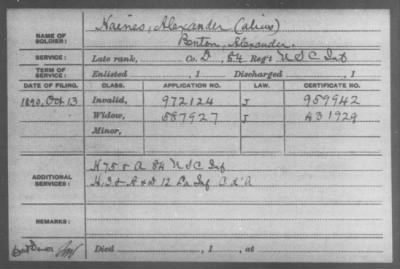 NAME OF SOLDIER: Haines, Alexander (alias)
Benton, Alexander.
SERVICE: Late rank, Co. D, 84 Reg't U S C Inf
TERM OF SERVICE: Enlisted , 1 Discharged , 1
DATE OF FILING. CLASS. APPLICATION NO. LAW. CERTIFICATE NO.
1890, Oct 13 Invalid, 972124 J 959942
Widow, 587927 J 431929
Minor,
ADDITIONAL SERVICES: H 75 & A 84 U S C Inf
H. 3 & A & D 12 La Inf C d'A
REMARKS:
Died , 1 , at